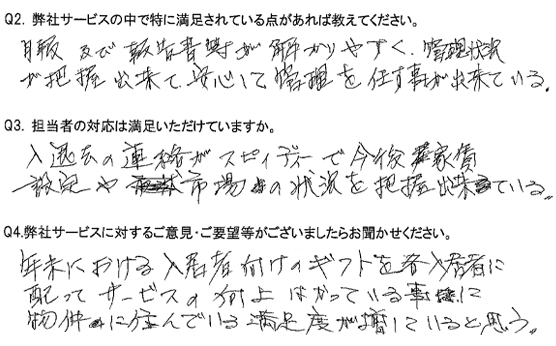 Q2. 弊社サービスの中で特に満足されている点があれば教えてください。
月報及び報告書等が解かりやすく、管理状況
が把握出来て、安心して管理を任す事が出来ている。
Q3. 担当者の対応は満足いただけていますか。
入退去の連絡がスピィディーで今後家賃
設定や市場の状況を把握出来ている。
Q4.弊社サービスに対するご意見・ご要望等がございましたらお聞かせください。
年末における入居者付けのギフトを各入居者に
配ってサービスの向上はかっている事に
物件に住んでいる満足度が増していると思う。